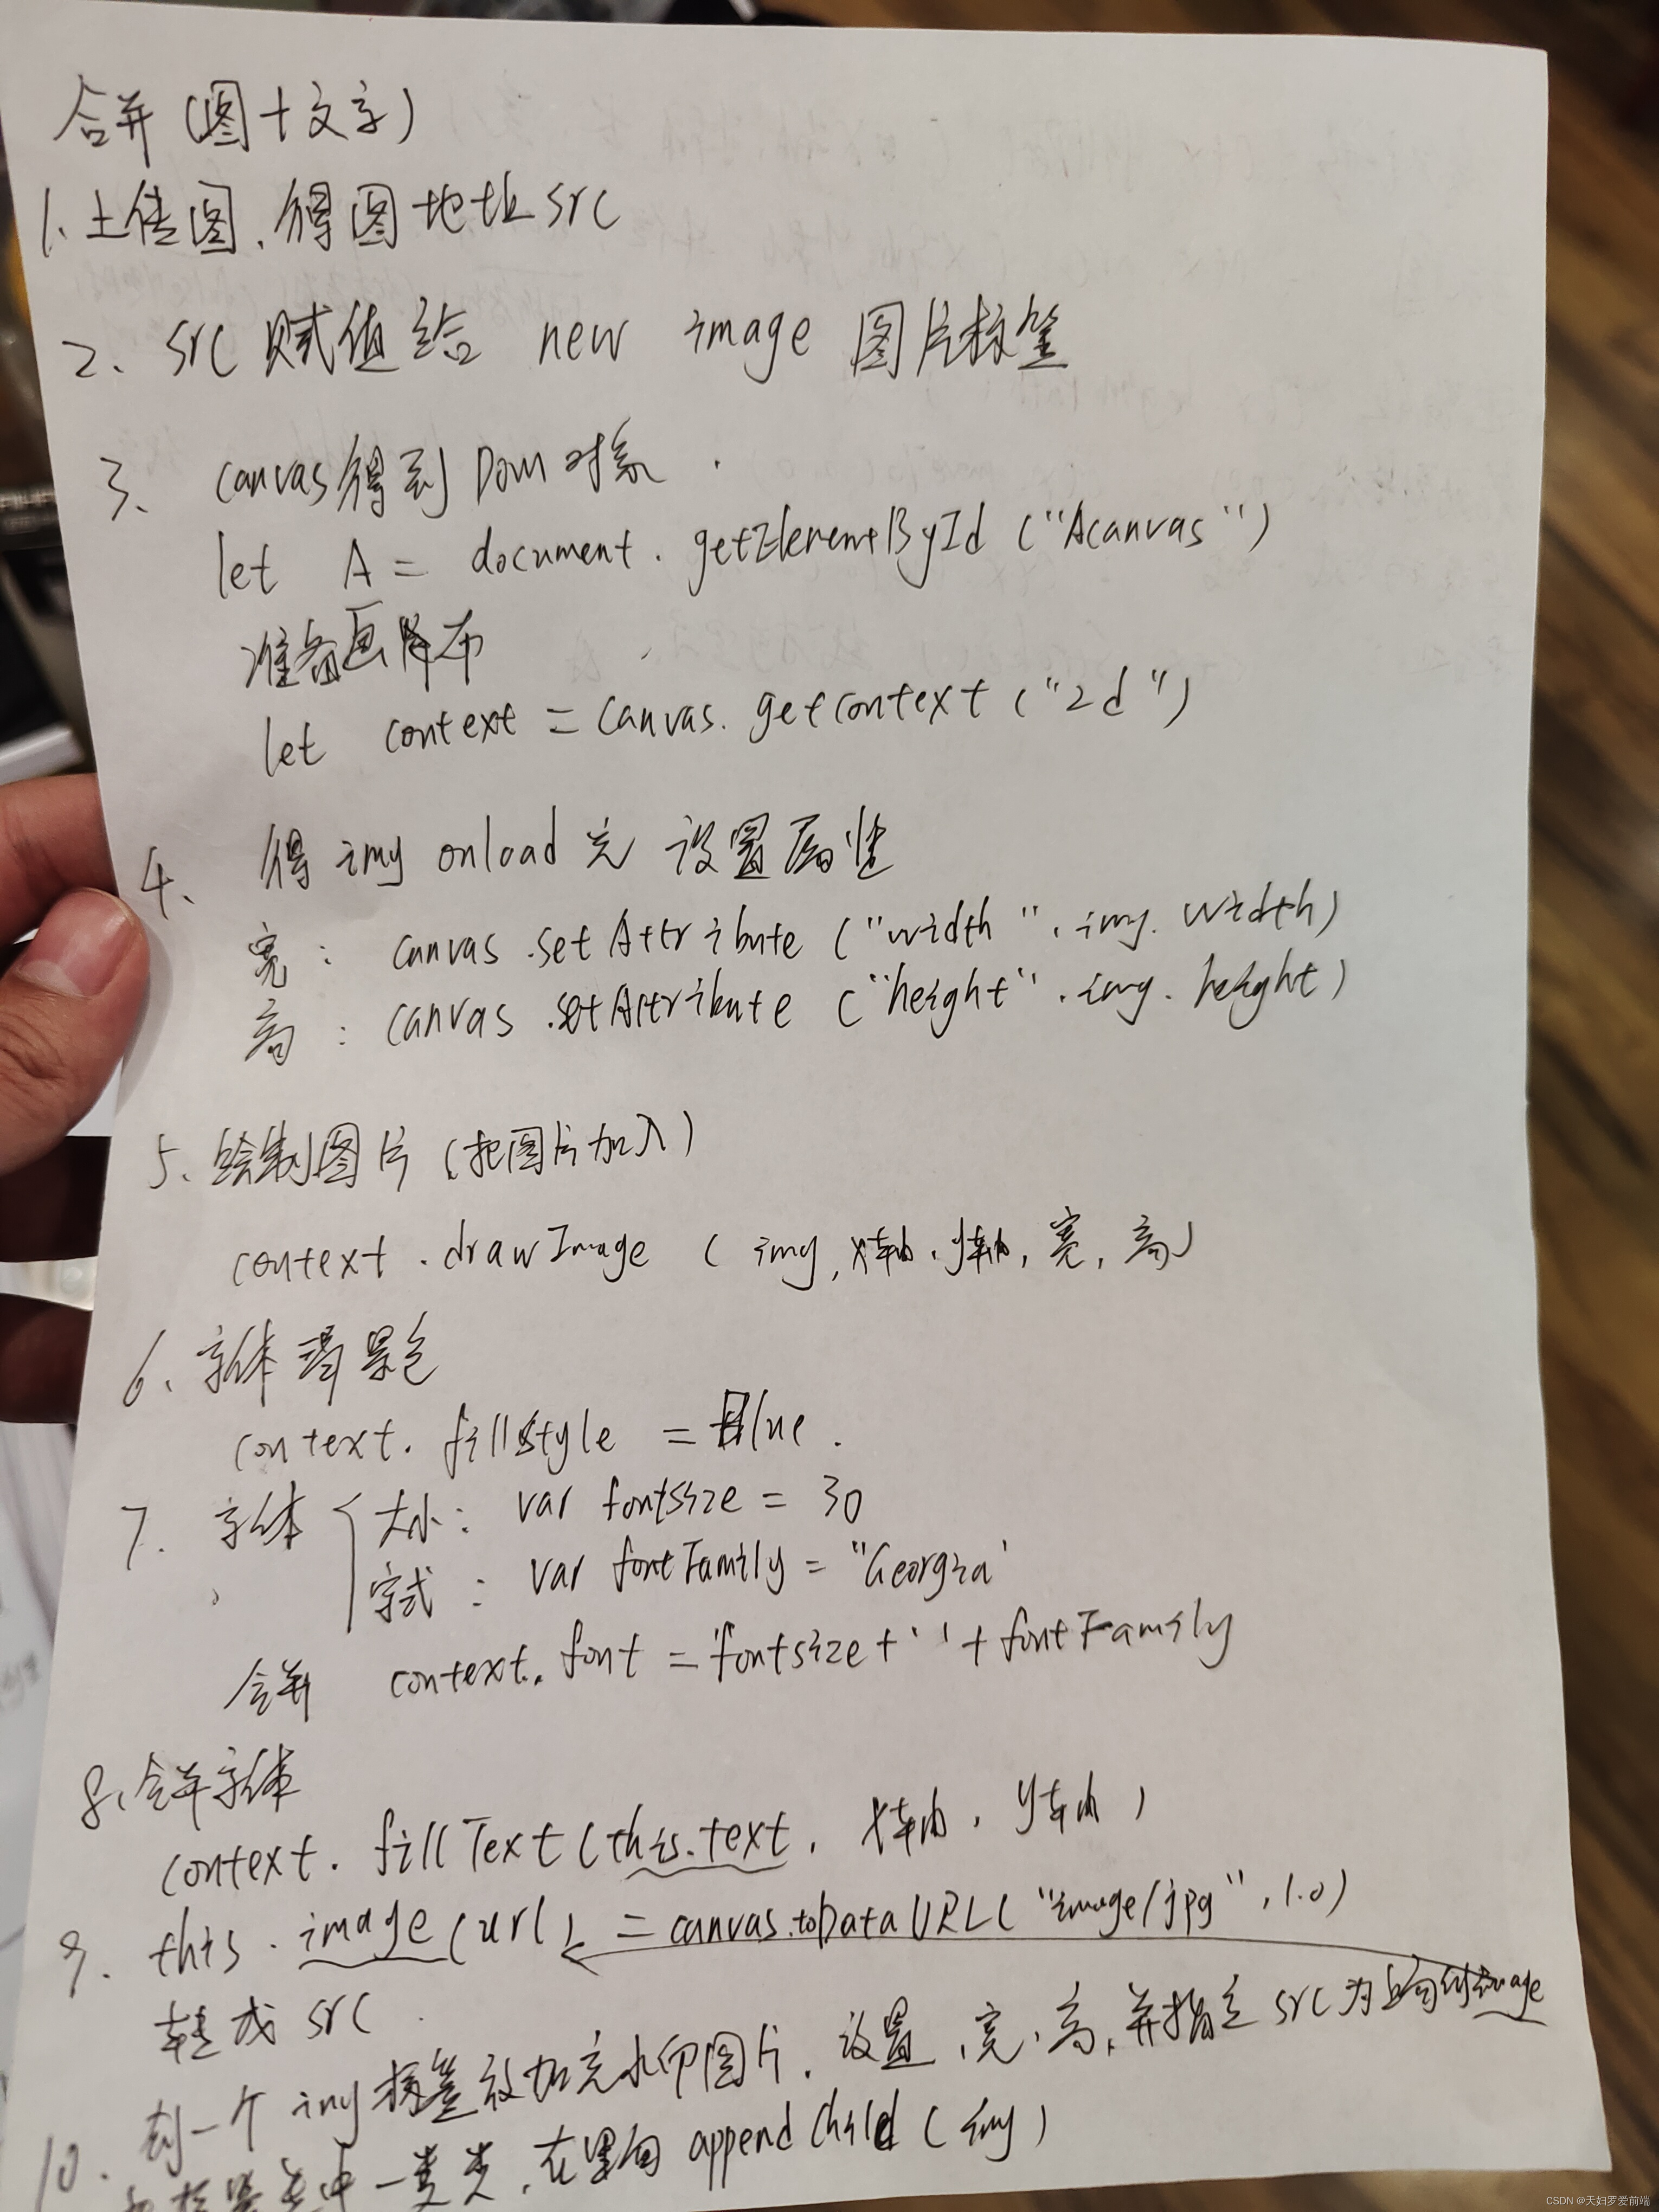 合并(图+文字)
1.上传图,得图地址src
2、src 赋值给 new image 图片标签
3、canvas得到Dom对象.
let A = document.getElementById("Acanvas")
准备画布
let context = canvas.getcontext("2d")
4、得img onload完 设置属性
宽: canvas.setAttribute("width",img.width)
高: canvas.setAttribute("height",img.height)
5、绘制图片(把图片加入)
context.drawImage(img,x轴,y轴,宽,高)
6、字体背景色
context.fillstyle = Blue.
7、字体 大小: var fontsize = 30
字式: var fontFamily = "Georgia'
合并 context.font = fontsize+' '+fontFamily
8、合并字体
context.fillText(this.text,x轴,y轴)
9、this.image(url) = canvas.toDataURL("image/jpg",1.0)
转成src.
10、创一个img标签放加完水印图片,设置,宽,高,并指定src为上面的image
一类类,在里面appendChild(img)
CSDN @天妇罗爱前端